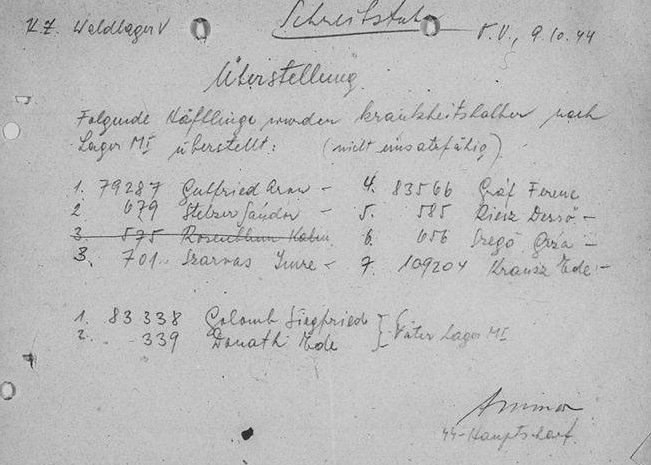 K.Z. Waldlager V
Schreibstube
V., 9.10.44
Überstellung
Folgende Häftlinge wurden krankheitshalber nach
Lager MI überstellt: (nicht einsatzfähig)
1. 79287 Gutfried – 4. 83566 Gráf Ferenc
2. 679 Stelzer Sándor – 5. 585 Riesz Dezső –
3. 575 Rosenblum Kálmán 6. 656 Szegő Géza –
3. 701 Szarvas Imre – 7. 109204 Krausz Ede –
1. 83338 Golomb Siegfried
2. 339 Donath Ede } Vater Lager MI
SS-Hauptscharf.